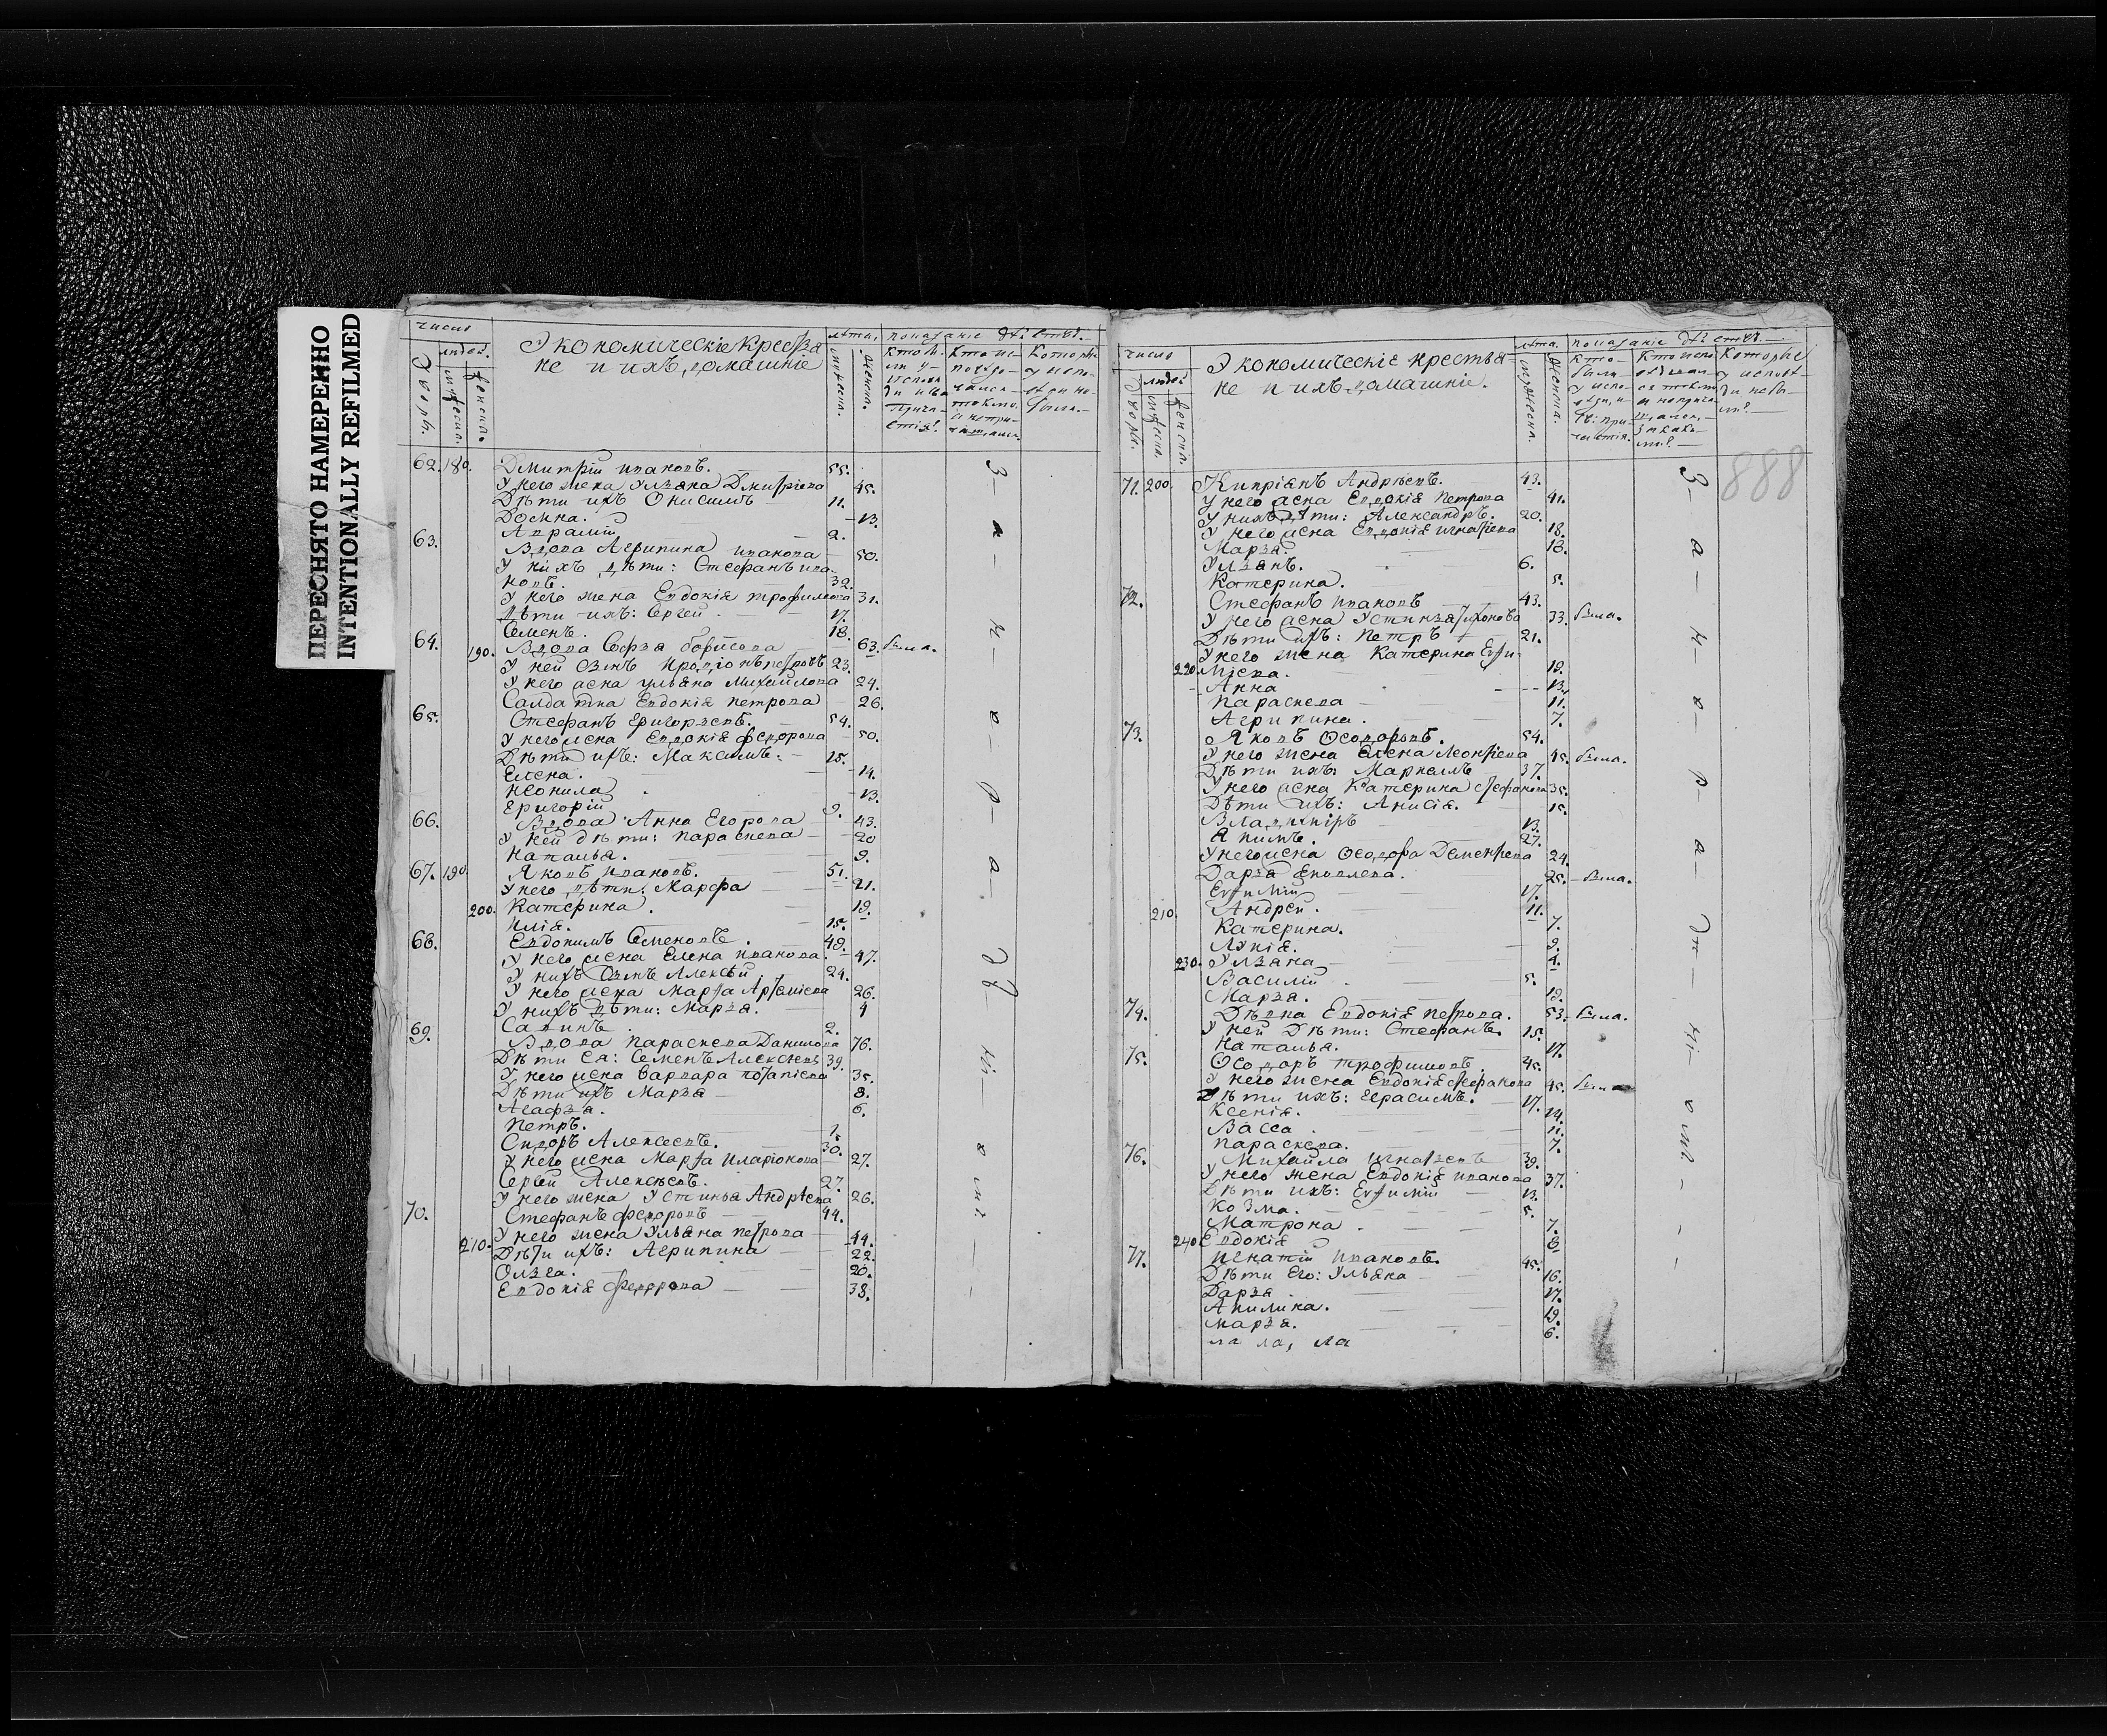 ПЕРЕСНЯТО НАМЕРЕННО
INTENTIONALLY REFILMED
число
людей.
лѣта.
показаніе дѣйства.
Экономическіе Крестья
не и ихъ домашніе
62. 180. Дмитрій Ивановъ. 55.
У него жена Ульяна Дмитріева 45.
Дѣти ихъ Онисимъ 11.
13.
63. Вдова Агрипина Иванова 50.
У нихъ дѣти: Стефанъ Ива-
новъ. 32.
У него жена Евдокія Трофимова 31.
Дѣти ихъ: Сергей 17.
Семенъ. 18.
64. 190. Вдова Софья Борисова 63. была.
У ней сынъ Иродіонъ Петровъ 23.
У него жена Ульяна Михайлова 24.
Салдатка Евдокія Петрова 26.
65. Стефанъ Григорьевъ. 54.
У него жена Евдокія Федорова 50.
Дѣти ихъ: Максимъ. 15.
Елена. 14.
Неонила 13.
Григорій 9.
66. Вдова Анна Егорова 43.
У ней дѣти: Параскева 20
Наталья. 9.
67. 190. Яковъ Ивановъ. 51.
У него дѣти: Марфа 21.
200. Катерина. 19.
Илія. 15.
68. Евдокимъ Семеновъ. 48.
У него жена Елена Иванова. 47.
У нихъ сынъ Алексѣй 24.
У него жена Марфа 26.
У нихъ дѣти: Марья. 4
Савинъ 2.
69. Вдова Параскева Данилова 76.
Дѣти ея: Семенъ Алексѣевъ 39.
У него жена Варвара Потапіева 35.
Дѣти ихъ Марья 8.
Агафья. 6.
Петръ. 1.
Сидоръ Алексеевъ. 30.
У него жена Марфа Иларіонова 27.
Сергей Алексѣевъ. 27.
У него жена Устинья Андрѣева 26.
70. Стефанъ Федоровъ 44.
У него жена Ульяна Петрова 44.
210. Дѣти ихъ: Агрипина 22.
Ольга. 20.
Евдокія Федорова 38.
число
людей
лѣта.
показаніе дѣйства.
Экономическіе Крестья
не и ихъ домашніе.
888
71. 200. Кипріанъ Андрѣевъ. 43.
У него жена Евдокія Петрова 41.
У нихъ дѣти: Александръ. 20.
У него жена Евдокія Игнатіева 18.
Марья. 18.
Ульянъ. 6.
Катерина. 5.
72. Стефанъ Ивановъ 43.
У него жена Устинья 33. была.
Дѣти ихъ: Петръ 21.
У него жена Катерина Евфи-
220. міева. 19.
Анна 13.
Параскева 11.
Агрипина. 7.
73. Яковъ Ѳеодоровъ. 54.
У него жена Елена Леонтіева 45. была.
Дѣти ихъ: Маркелъ 37.
У него жена Катерина Стефанова 35.
Дѣти ихъ: Анисія. 15.
Владиміръ 13.
Якимъ. 27.
У него жена Ѳеодора Дементіева 24.
Дарья 25. была.
Евфимій 17.
210. Андрей. 11.
Катерина. 7.
Лукія. 9.
230. Ульяна 4.
Василій 5.
Марья. 19.
74. Дѣвка Евдокія Петрова. 53. была.
У ней дѣти: Стефанъ. 15.
Наталья. 17.
75. Ѳеодоръ Трофимовъ. 45.
У него жена Евдокія Стефанова 45. была
Дѣти ихъ: Герасимъ. 17.
Ксенія. 14.
Васса 11.
Параскева. 7.
76. Михайла Игнатьевъ 39.
У него жена Евдокія Иванова 37.
Дѣти ихъ: Евфимій 13.
Козма. 5.
Матрона. 7.
240 Евдокія 3
77. Игнатій Ивановъ. 45.
Дѣти его: Ульяна 16.
Дарья 17.
Акилина. 19.
Марья. 6.